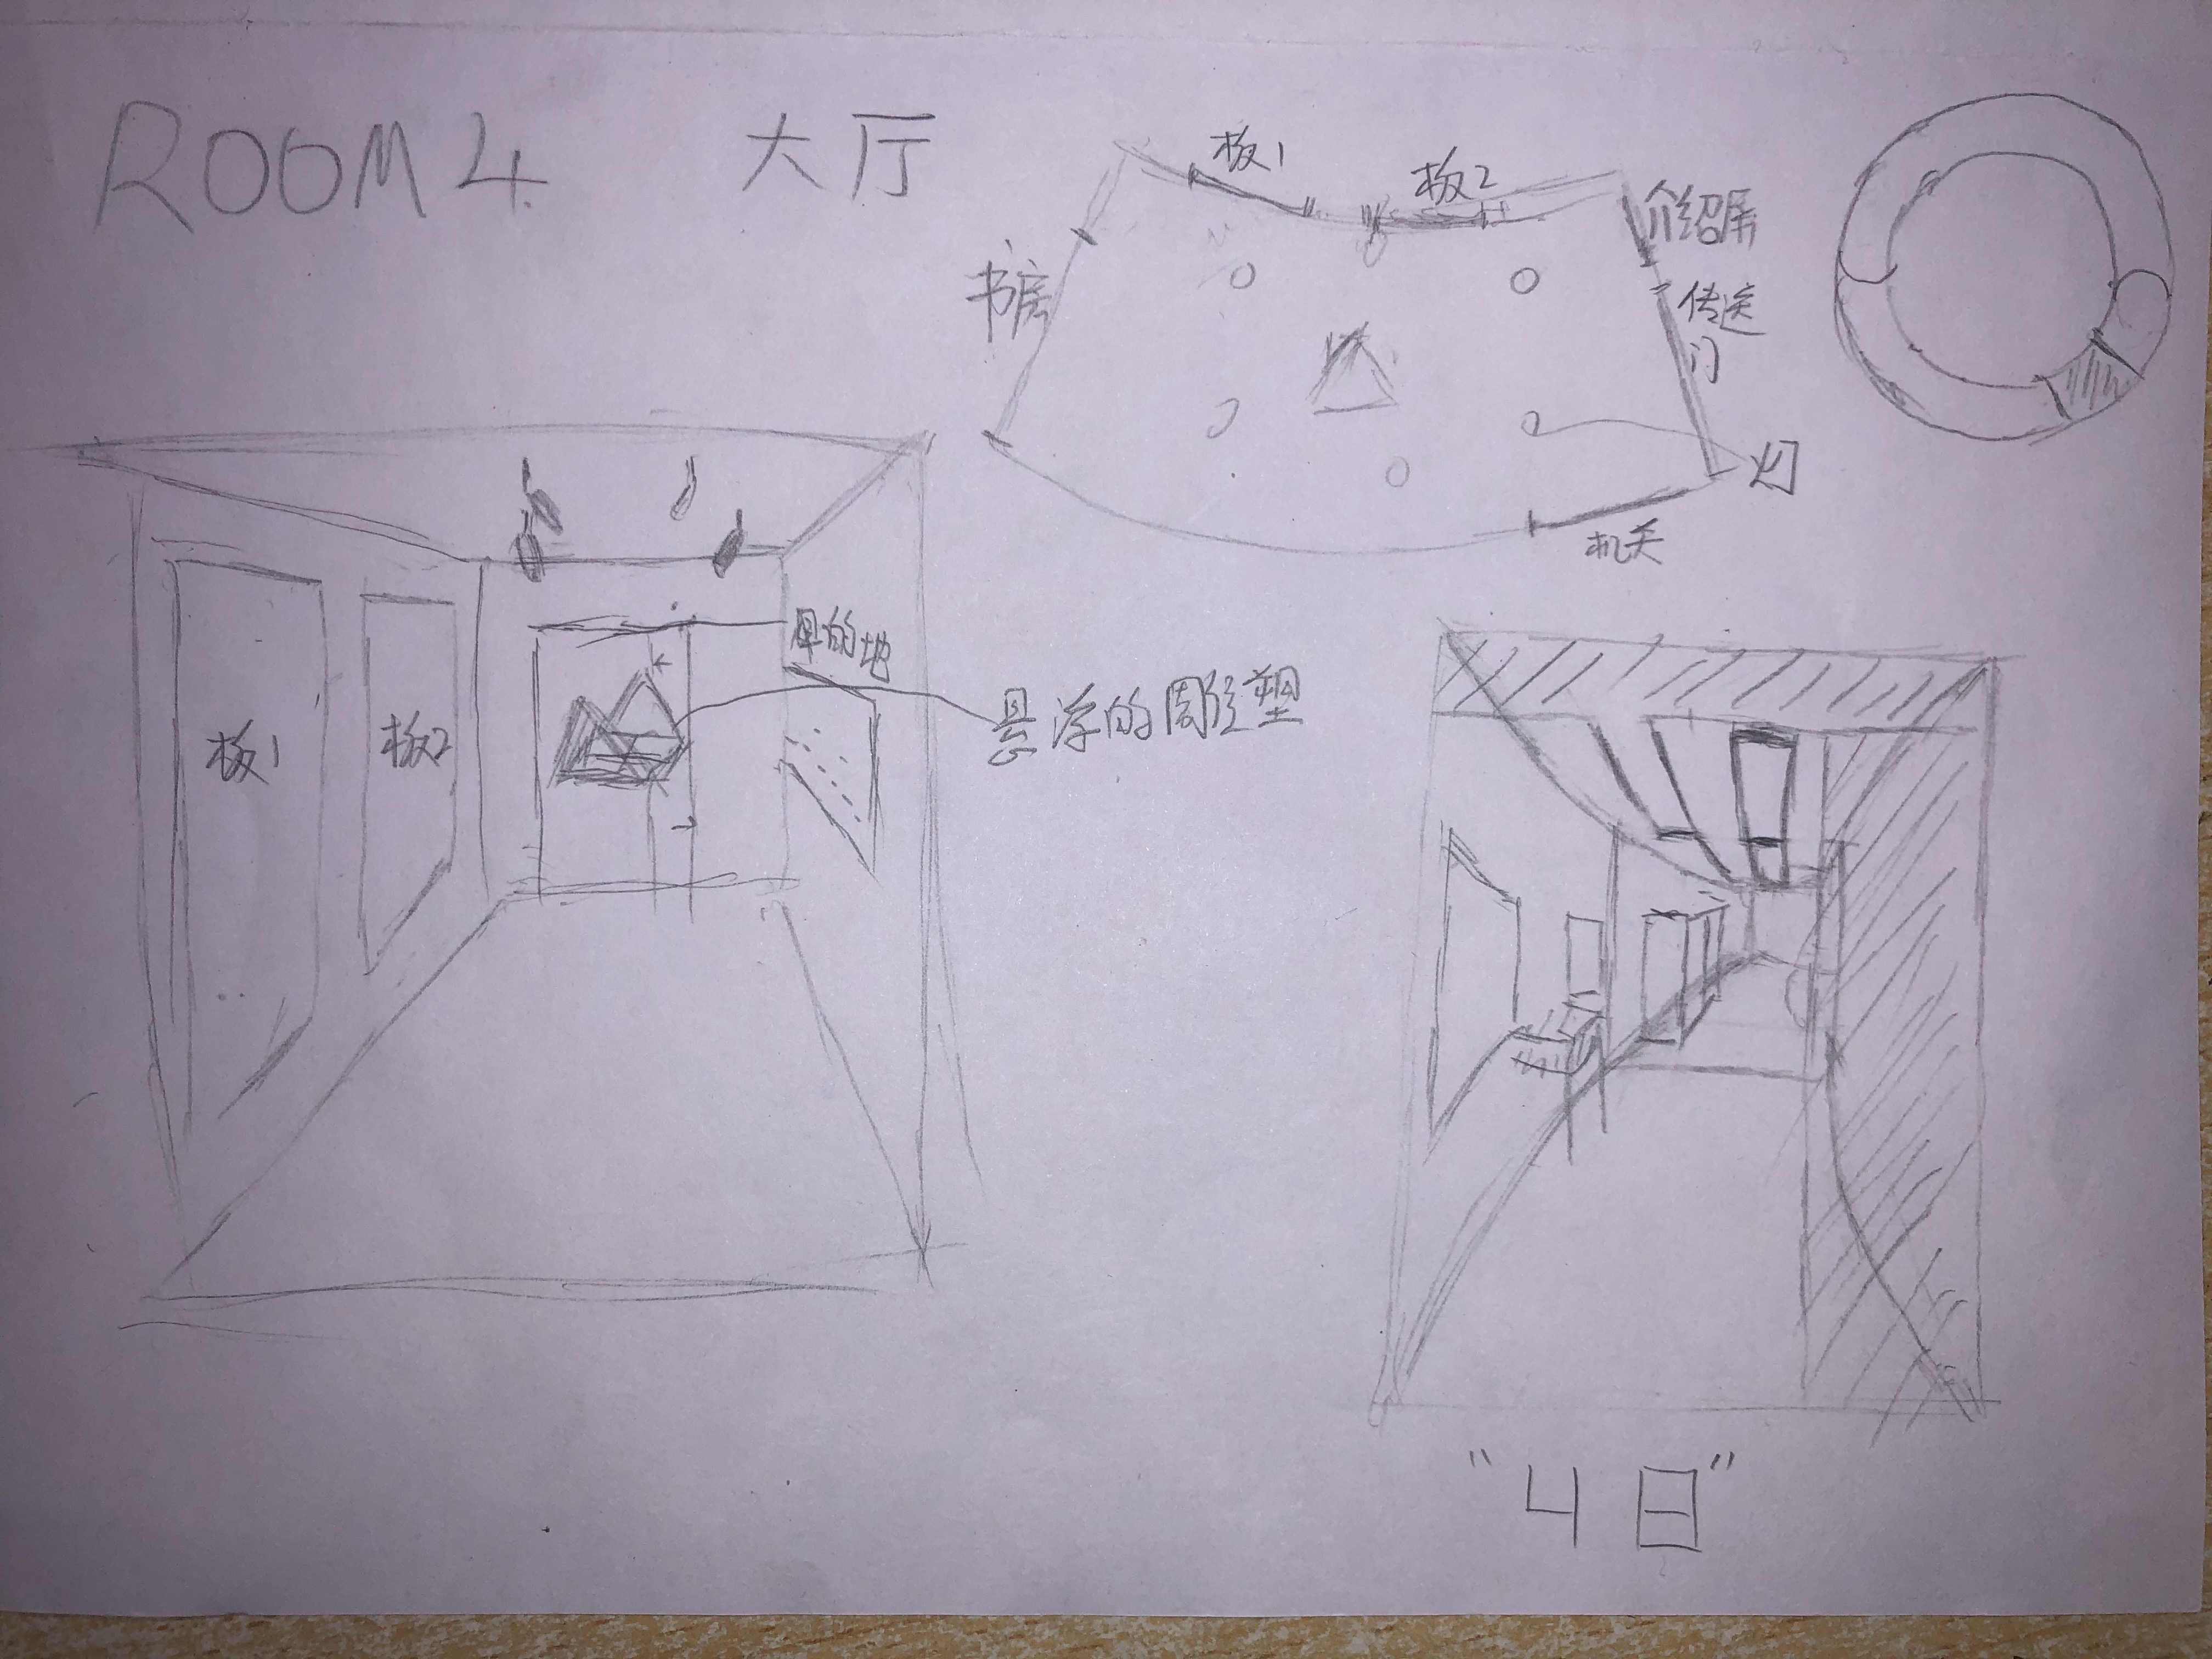 ROOM 4 大厅
板1
板2
介绍屏
书房
传送
门
灯
机关
板1
板2
悬浮的雕塑
"4日"